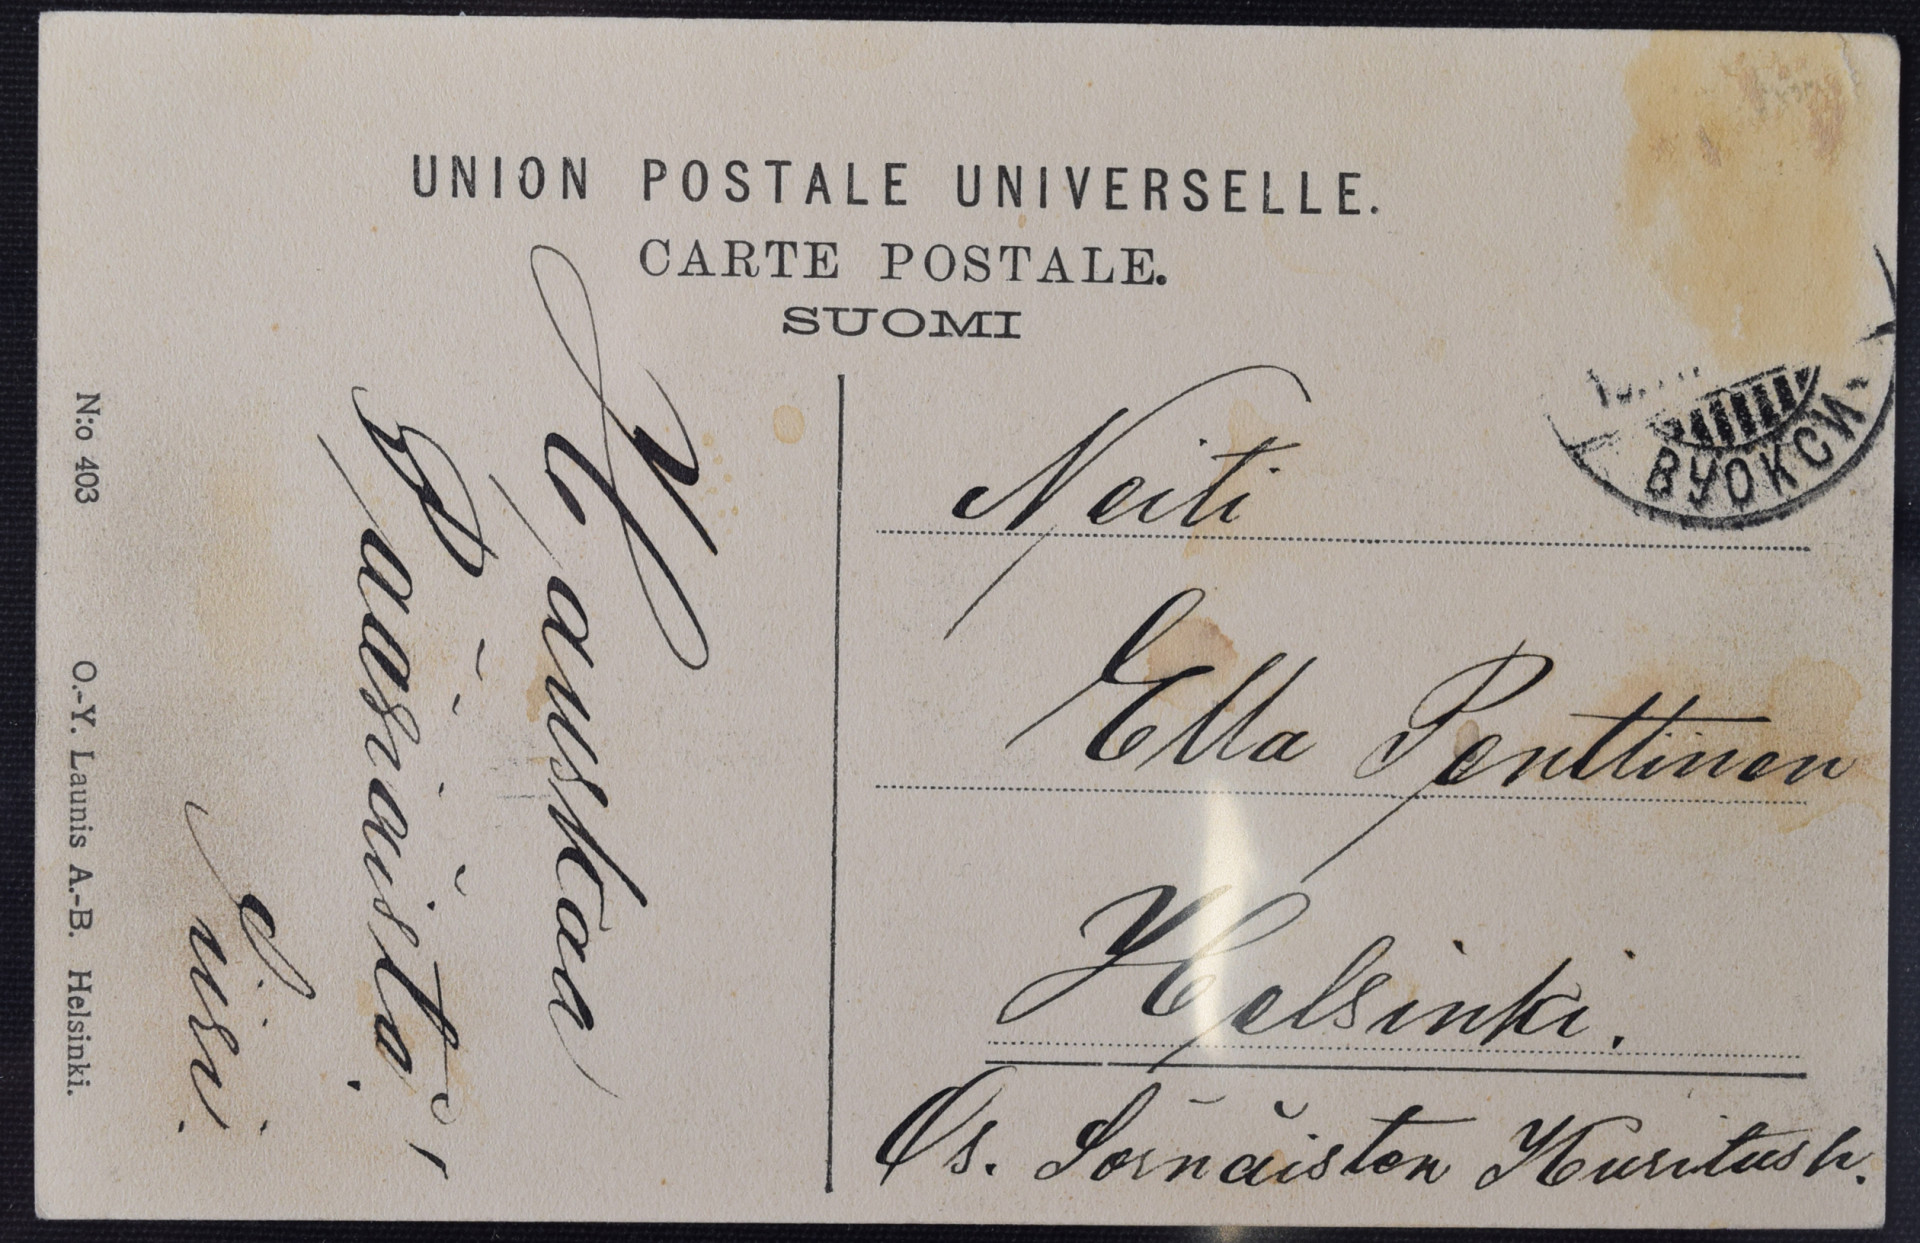 UNION POSTALE UNIVERSELLE.
CARTE POSTALE.
SUOMI
Hauskaa
Pääsiäistä!
Siiri.
Neiti
Ella Penttinen
Helsinki.
Os. Sörnäisten Kuritush.
ВУОКСИ
N:o 403 O.-Y. Launis A.-B. Helsinki.